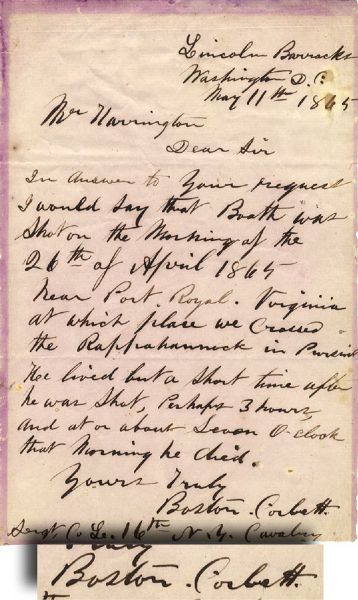 Lincoln Barracks
Washington D.C.
May 11th 1865
Mr Harrington
Dear Sir
In answer to Your request
I would say that Booth was
Shot on the Morning of the
26th of April 1865
Near Port Royal. Virginia
at which place we Crossed
the Rappahannock in Pursuit
He lived but a Short time after
he was Shot, Perhaps 3 hours
and at or about Seven O-clock
that Morning he died.
Yours Truly
Boston. Corbett.
Sergt. Co L. 16th N.Y. Cavalry
Boston. Corbett.